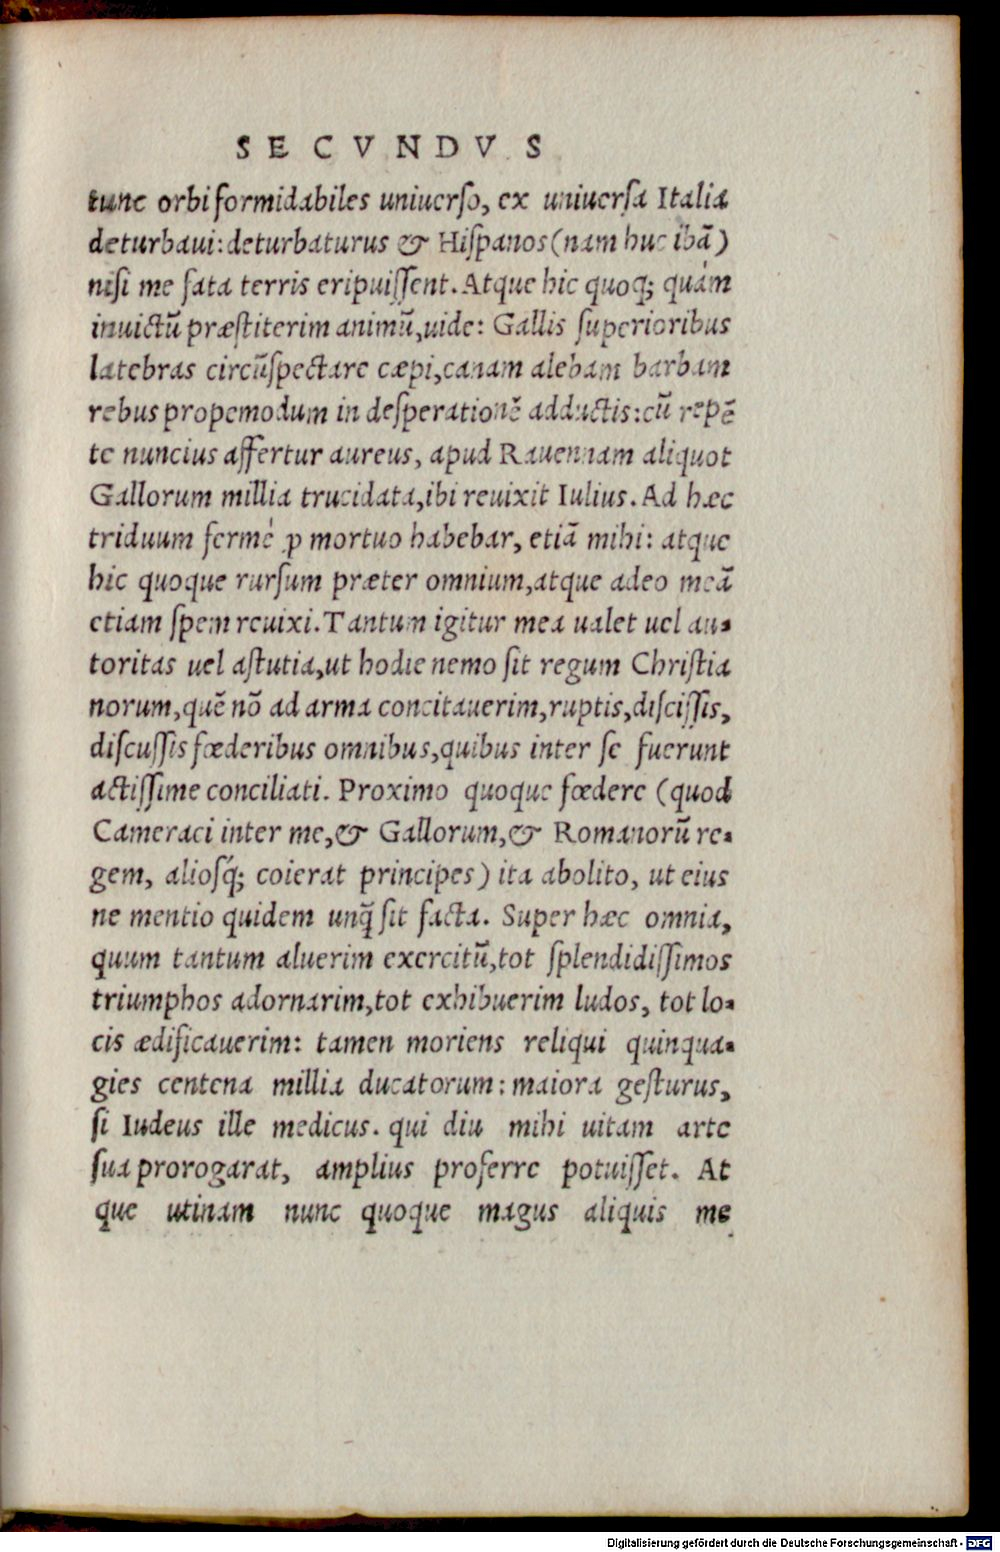 SECVNDVS
tunc orbi formidabiles uniuerso, ex uniuersa Italia
deturbaui: deturbaturus & Hispanos (nam huc ibā)
nisi me fata terris eripuissent. Atque hic quoq; quàm
inuictū præstiterim animū, uide: Gallis superioribus
latebras circūspectare cæpi, canam alebam barbam
rebus propemodum in desperationē adductis: cū repē
te nuncius affertur aureus, apud Rauennam aliquot
Gallorum millia trucidata, ibi reuixit Iulius. Ad hæc
triduum fermè ꝓ mortuo habebar, etiā mihi: atque
hic quoque rursum præter omnium, atque adeo meā
etiam spem reuixi. Tantum igitur mea ualet uel au-
toritas uel astutia, ut hodie nemo sit regum Christia
norum, quē nō ad arma concitauerim, ruptis, discissis,
discussis fœderibus omnibus, quibus inter se fuerunt
actissime conciliati. Proximo quoque fœdere (quod
Cameraci inter me, & Gallorum, & Romanorū re-
gem, aliosq́; coierat principes) ita abolito, ut eius
ne mentio quidem unq̄ sit facta. Super hæc omnia,
quum tantum aluerim exercitū, tot splendidissimos
triumphos adornarim, tot exhibuerim ludos, tot lo-
cis ædificauerim: tamen moriens reliqui quinqua-
gies centena millia ducatorum: maiora gesturus,
si Iudeus ille medicus. qui diu mihi uitam arte
sua prorogarat, amplius proferre potuisset. At
que utinam nunc quoque magus aliquis me
Digitalisierung gefördert durch die Deutsche Forschungsgemeinschaft - DFG